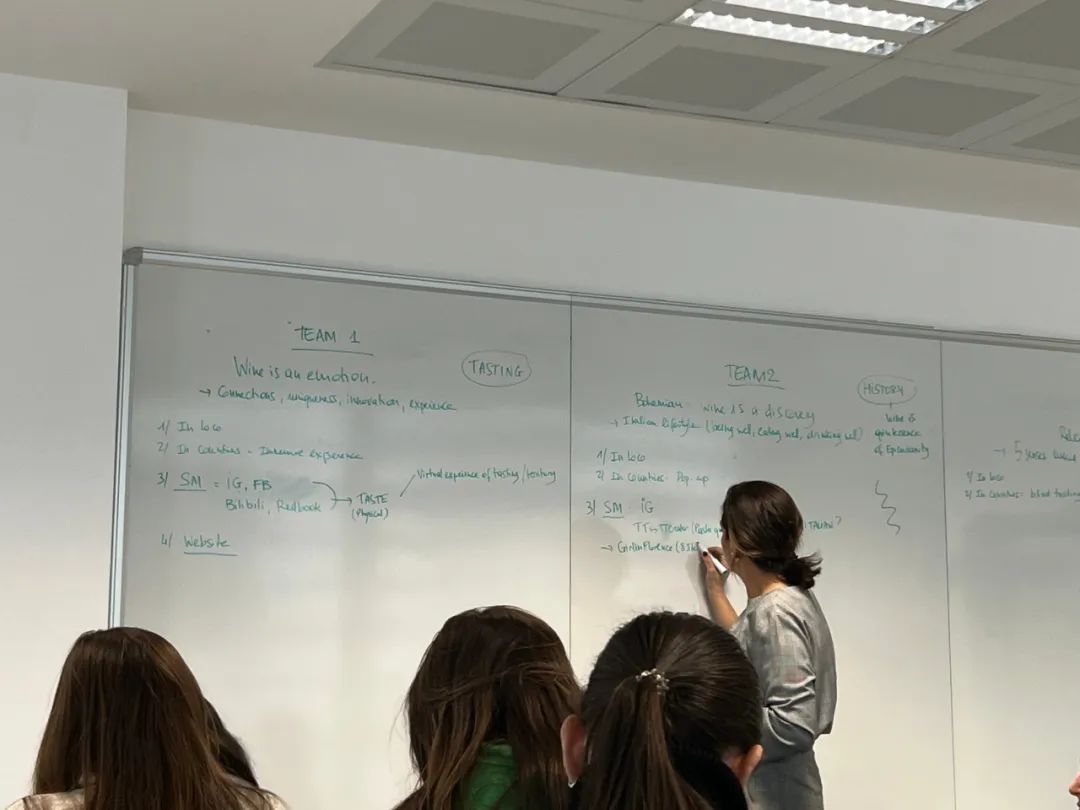 TEAM 1
TASTING
Wine is an emotion.
→ Connections, uniqueness, innovation, experience
1/ In loco
2/ In Countries - Immersive experience
3/ SM = IG, FB
Bilibili, Redbook
→ TASTE
(Physical)
Virtual experience of tasting / teaching
4/ Website
TEAM 2
HISTORY
Bohemian - Wine is a discovery
→ Italian lifestyle (being well, eating well, drinking well)
Wine is
quintessence
of Epicureanity
1/ In loco
2/ In Countries - Pop. up
3/ SM : IG
ITALIAN?
→ GirlinFlorence
→ 5 senses
1/ In loco
2/ In Countries - blind tasting